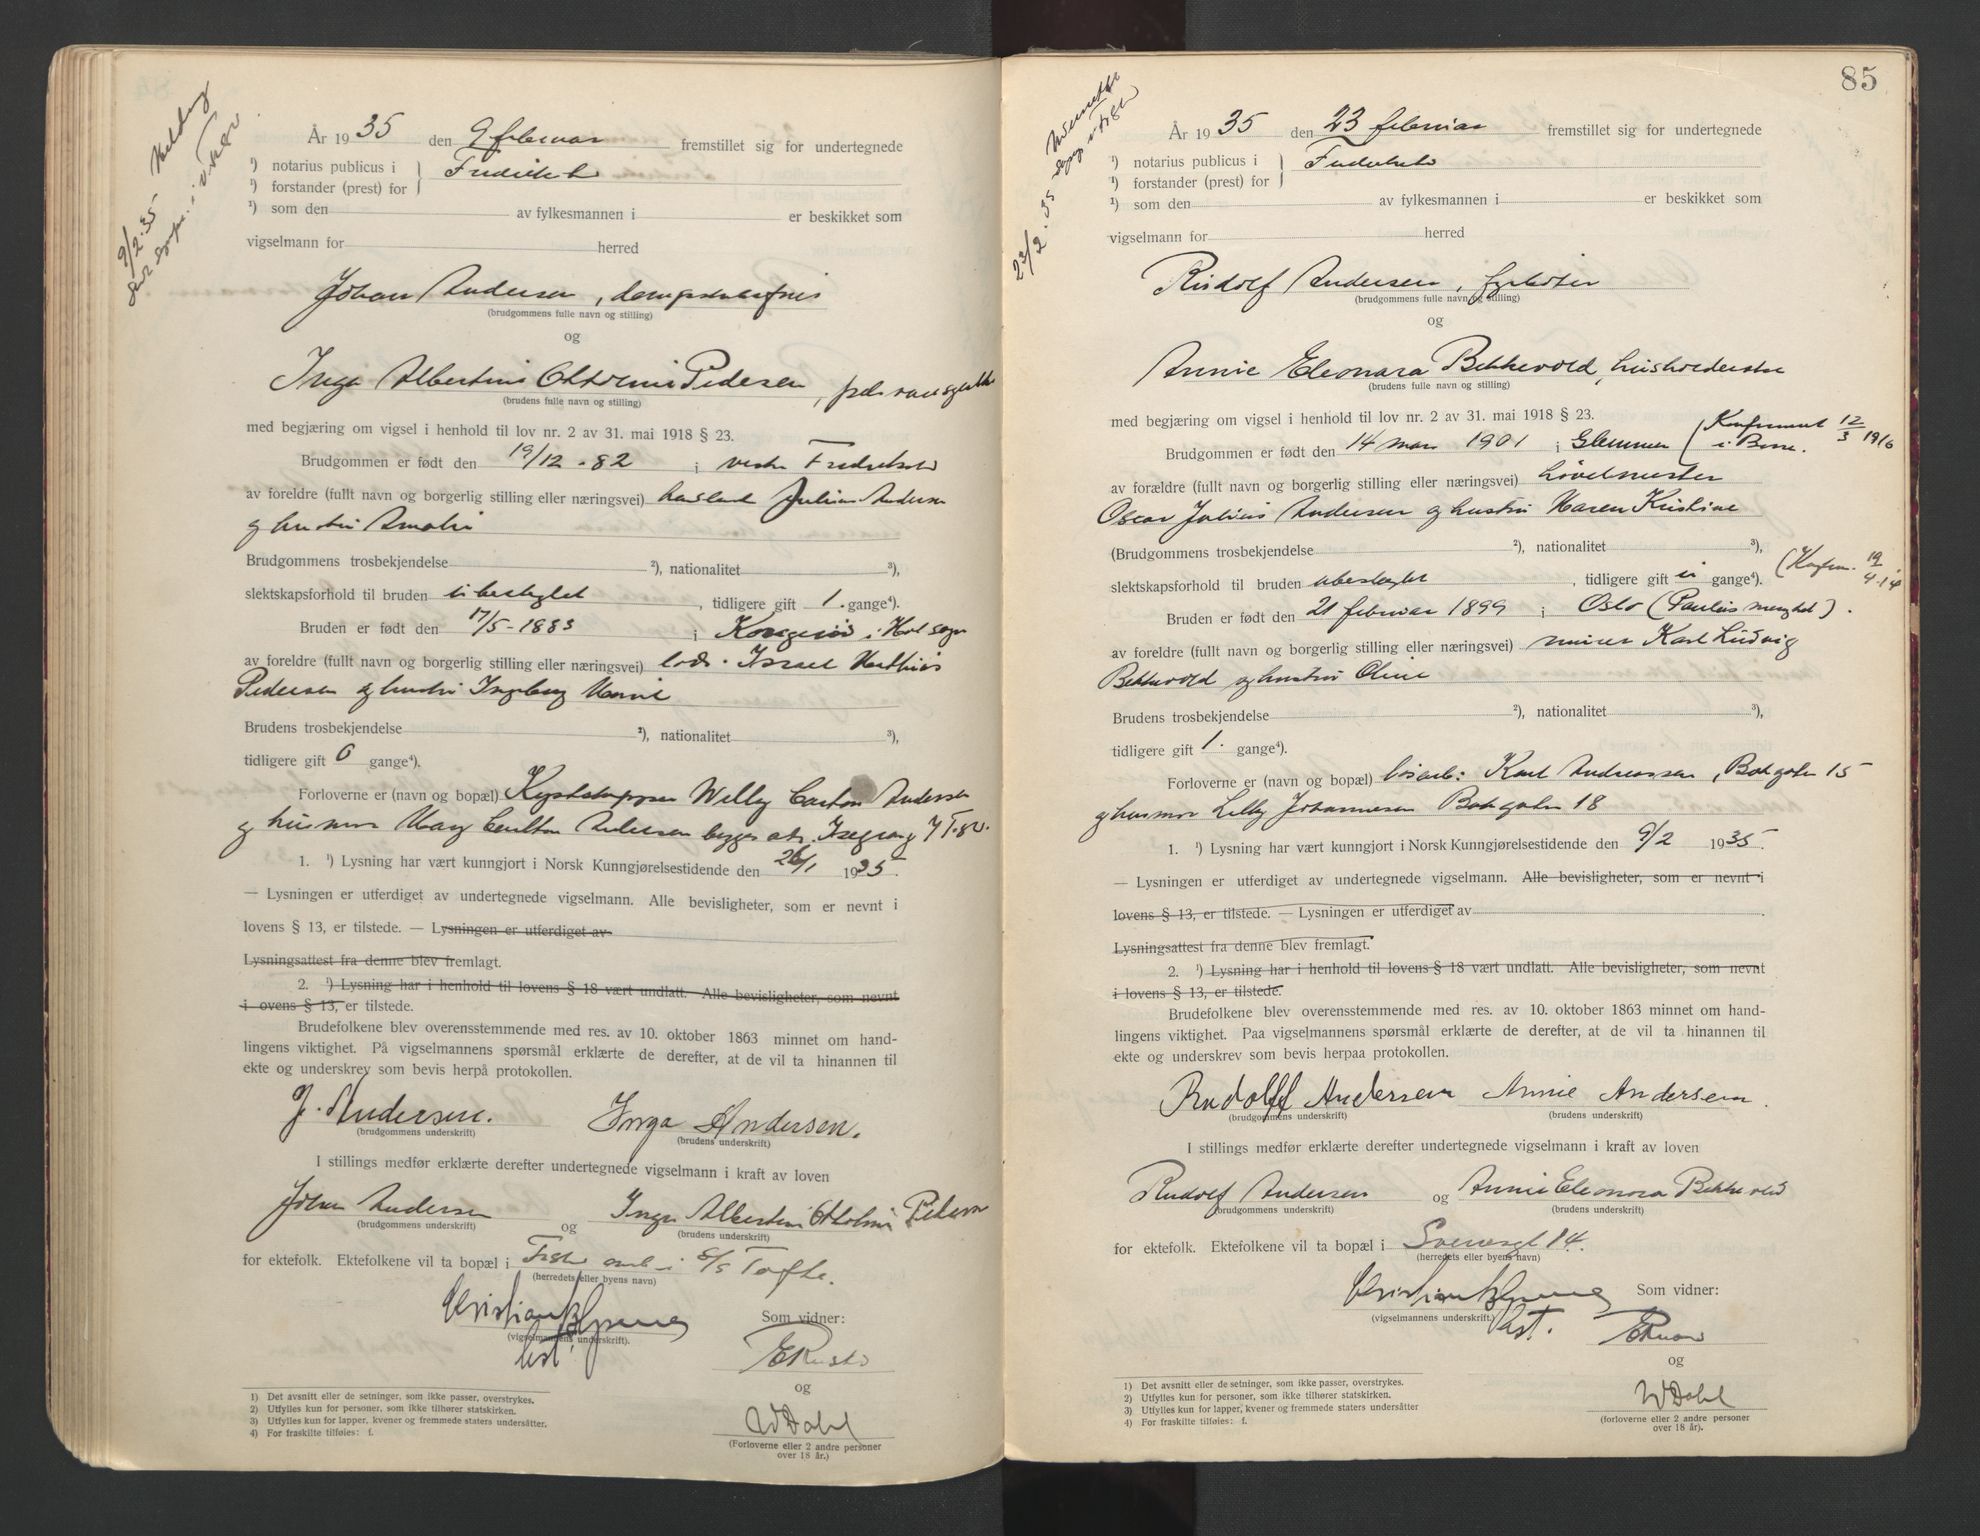 9/2.35
År 1935 den 9 februar fremstillet sig for undertegnede
¹) notarius publicus i
¹) forstander (prest) for
¹) som den av fylkesmannen i er beskikket som
vigselmann for herred
Johan Andersen,
(brudgommens fulle navn og stilling)
og
Inga Albertine Pedersen,
(brudens fulle navn og stilling)
med begjæring om vigsel i henhold til lov nr. 2 av 31. mai 1918 § 23.
Brudgommen er født den 19/12-82 i
av foreldre (fullt navn og borgerlig stilling eller næringsvei) Julius Andersen
og hustru
Brudgommens trosbekjendelse ²), nationalitet ³),
slektskapsforhold til bruden ubeslegtet, tidligere gift 1. gange⁴).
Bruden er født den 17/5-1883 i
av foreldre (fullt navn og borgerlig stilling eller næringsvei) lods. Israel Mathias
Pedersen og hustru Ingeborg
Brudens trosbekjendelse ²), nationalitet ³),
tidligere gift 0 gange⁴).
Forloverne er (navn og bopæl) Willy Carlton Andersen
og husmor Andersen begges adr.
1. ¹) Lysning har vært kunngjort i Norsk Kunngjørelsestidende den 26/1 1935.
— Lysningen er utferdiget av undertegnede vigselmann. Alle bevisligheter, som er nevnt i
lovens § 13, er tilstede. — Lysningen er utferdiget av
Lysningsattest fra denne blev fremlagt.
2. ¹) Lysning har i henhold til lovens § 18 vært undlatt. Alle bevisligheter, som nevnt
i ovens § 13, er tilstede.
Brudefolkene blev overensstemmende med res. av 10. oktober 1863 minnet om hand-
lingens viktighet. På vigselmannens spørsmål erklærte de derefter, at de vil ta hinannen til
ekte og underskrev som bevis herpå protokollen.
J. Andersen. Inga Andersen.
(brudgommens underskrift) (brudens underskrift)
I stillings medfør erklærte derefter undertegnede vigselmann i kraft av loven
Johan Andersen og Inga Albertine Pedersen
(brudgommens underskrift) (brudens underskrift)
for ektefolk. Ektefolkene vil ta bopæl i
(herredets eller byens navn)
Som vidner:
(vigselmannens underskrift).
cst.
og
W Dahl
(Forloverne eller 2 andre personer
over 18 år.)
1) Det avsnitt eller de setninger, som ikke passer, overstrykes.
2) Utfylles kun for personer, som ikke tilhører statskirken.
3) Utfylles kun for lapper, kvener og fremmede staters undersåtter.
4) For fraskilte tilføies: f.
85
23/2. 35
År 1935 den 23 februar fremstillet sig for undertegnede
¹) notarius publicus i
¹) forstander (prest) for
¹) som den av fylkesmannen i er beskikket som
vigselmann for herred
Rudolf Andersen, fyrbøter
(brudgommens fulle navn og stilling)
og
Annie Eleonora Bekkevold, husholderske
(brudens fulle navn og stilling)
med begjæring om vigsel i henhold til lov nr. 2 av 31. mai 1918 § 23.
Brudgommen er født den 14 mars 1901 i Glemmen (Konfirmert 12/3 1916
av forældre (fullt navn og borgerlig stilling eller næringsvei)
Oscar Julius Andersen og hustru Maren Kristine
(Brudgommens trosbekjendelse ²), nationalitet ³),
slektskapsforhold til bruden ubeslegtet, tidligere gift gange⁴). (Konfirm. 19/4.14
Bruden er født den 21 februar 1899 i Oslo (Paulus menighet).
av foreldre (fullt navn og borgerlig stilling eller næringsvei) murer Karl Ludvig
Bekkevold og hustru Oline
Brudens trosbekjendelse ²), nationalitet ³),
tidligere gift 1. gange⁴).
Forloverne er (navn og bopæl) løsarb: Karl Andreassen, 15
og husmor Lilly Johannesen 18
1. ¹) Lysning har vært kunngjort i Norsk Kunngjørelsestidende den 9/2 1935.
— Lysningen er utferdiget av undertegnede vigselmann. Alle bevisligheter, som er nevnt i
lovens § 13, er tilstede. — Lysningen er utferdiget av
Lysningsattest fra denne blev fremlagt.
2. ¹) Lysning har i henhold til lovens § 18 vært undlatt. Alle bevisligheter, som nevnt
i lovens § 13, er tilstede.
Brudefolkene blev overensstemmende med res. av 10. oktober 1863 minnet om hand-
lingens viktighet. Paa vigselmannens spørsmål erklærte de derefter, at de vil ta hinannen til
ekte og underskrev som bevis herpaa protokollen.
Rudolf Andersen Annie Andersen.
(brudgommens underskrift) (brudens underskrift)
I stillings medfør erklærte derefter undertegnede vigselmann i kraft av loven
Rudolf Andersen og Annie Eleonora Bekkevold
(brudgommens underskrift) (brudens underskrift)
for ektefolk. Ektefolkene vil ta bopæl i 14.
(herredets eller byens navn)
Som vidner:
(vigselmannens underskrift.)
cst.
og
W Dahl
(forloverne eller 2 andre personer
over 18 år).
1) Det avsnitt eller de setninger, som ikke passer, overstrykes.
2) Utfylles kun for personer, som ikke tilhører statskirken.
3) Utfylles kun for lapper, kvener og fremmede staters undersåtter
4) For fraskilte tilføies: f.